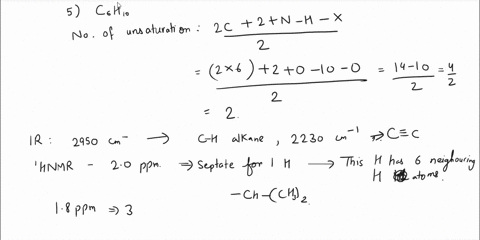 5) C6H10
No. of unsaturation : 2C + 2 + N - H - X / 2
= (2×6) + 2 + 0 - 10 - 0 / 2 = 14 - 10 / 2 = 4 / 2
= 2.
IR : 2950 cm⁻ → C-H alkane , 2230 cm⁻¹ → C≡C
¹HNMR - 2.0 ppm ⇒ Septate for 1 H → This H has 6 neighbouring
H atoms.
-CH-(CH3)2
1.8 ppm ⇒ 3